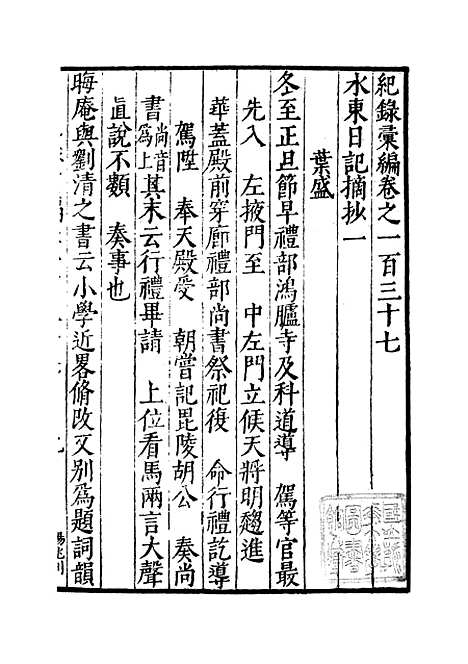 紀錄彙編卷之一百三十七
水東日記摘抄一
葉盛
冬至正旦節早禮部鴻臚寺及科道導 駕等官最
先入 左掖門至 中左門立候天將明趨進
華蓋殿前穿廊禮部尚書祭祀復 命行禮訖導
駕陞 奉天殿受 朝嘗記毘陵胡公 奏尚
書尚音爲上其末云行禮畢請 上位看馬兩言大聲
直說不類 奏事也
晦庵與劉清之書云小學近畧脩改又别爲題詞韻